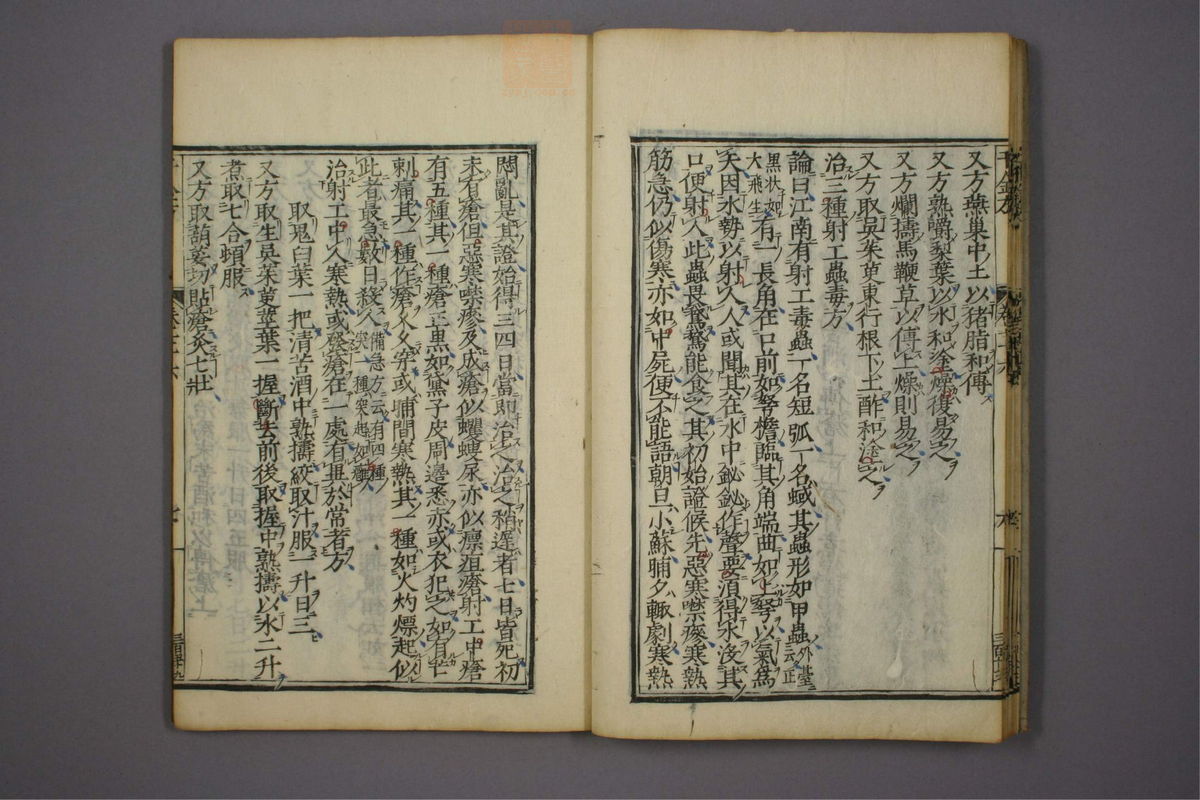 又方燕巢中土以猪脂和傅
又方熟嚼梨葉以水和塗燥復易之
又方爛擣馬鞭草以傅上燥則易之
又方取吳茱萸東行根下土酢和塗之
治三種射工蟲毒方
論曰江南有射工毒蟲一名短狐一名蜮其蟲形如甲蟲外臺云正
黑状如大飛生有一長角在口前如弩檐臨其角端曲如上弩以氣為
矢因水勢以射人人或聞其在水中鉍鉍作聲要須得水沒其
口便射人此蟲畏鵞鵞能食之其初始證候先惡寒噤瘮寒熱
筋急仍似傷寒亦如中尸便不能語朝旦小蘇晡夕輙劇寒熱
悶亂是其證始得三四日當即治之治之稍遲者七日皆死初
未有瘡但惡寒噤瘮及成瘡似蠼螋尿亦似瘭疽瘡射工中瘡
有五種其一種瘡正黒如黶子皮周邊悉赤或衣犯之如有芒
刺痛其一種作瘡久久穿或晡間寒熱其一種如火灼熛起似
此者最急數日殺人備急方云有四種其一種突起如癰
治射工中人寒熱或發瘡在一處有異於常者方
取鬼臼葉一把清苦酒中熟擣絞取汁服一升日三
又方取生吳茱萸莖葉一握斷去前後取握中熟擣以水二升
煮取七合頓服
又方取葫切貼瘡灸七壯